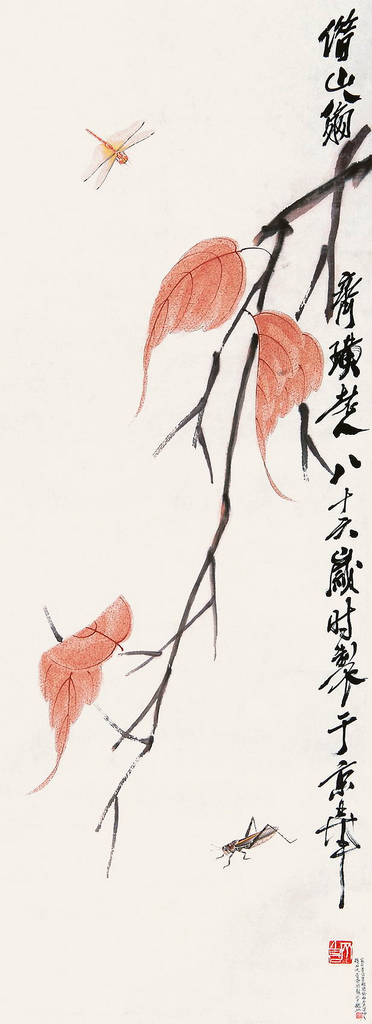 借山翁齊璜老人八十六歲时製于京華